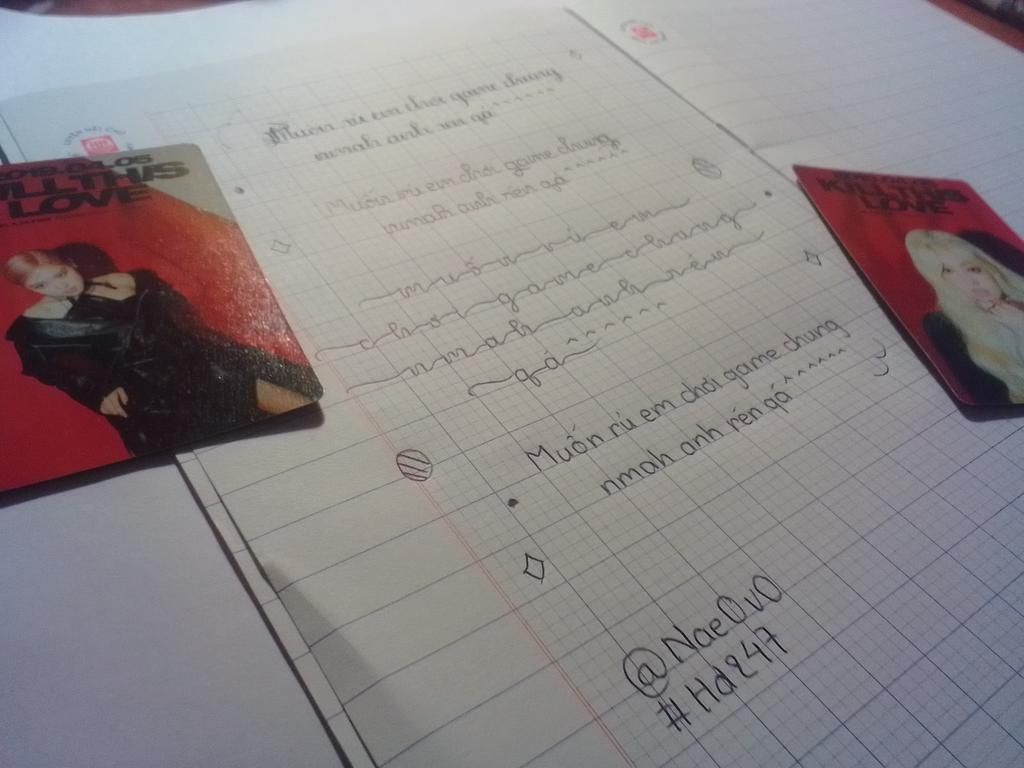 Muốn rủ em chơi game chung
nmah anh rén qá^^^^^^
Muốn rủ em chơi game chung
nmah anh rén qá^^^^^^
muốn rủ em
chơi game chung
nmah anh rén
qá^^^^^^
Muốn rủ em chơi game chung
nmah anh rén qá^^^^^^
@Nae0v0
#Hd247
KILL THIS
LOVE
KILL THIS
LOVE